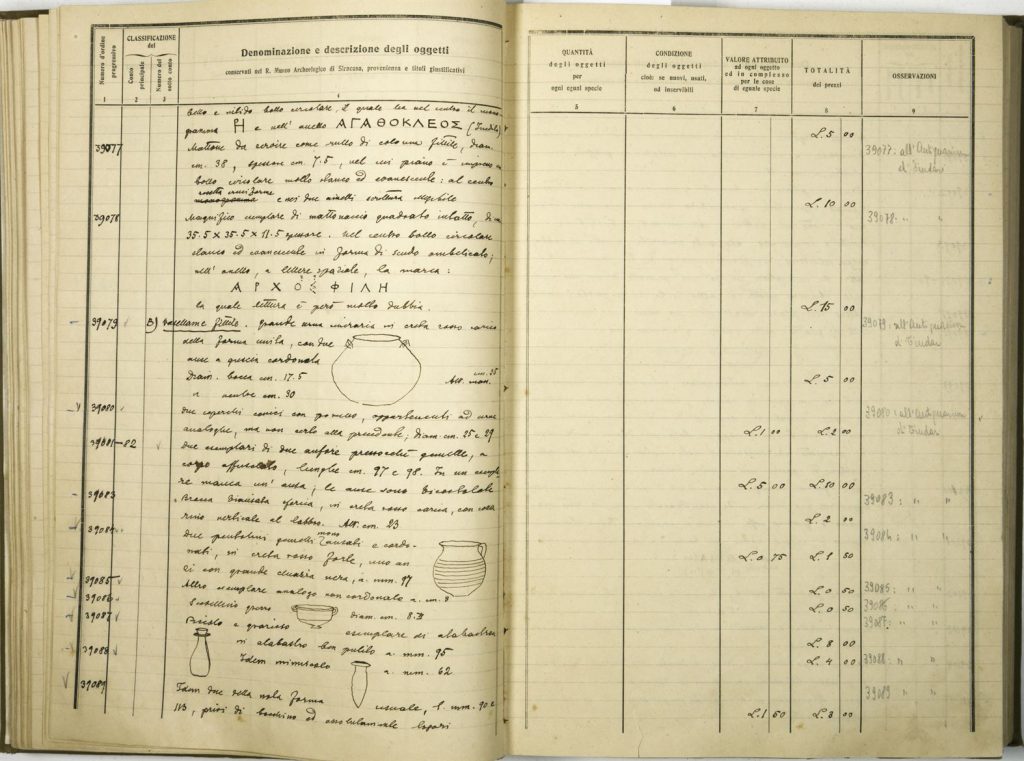 Numero d'ordine progressivo
CLASSIFICAZIONE del
Conto principale
Numero del sotto conto
Denominazione e descrizione degli oggetti
conservati nel R. Museo Archeologico di Siracusa, provenienza e titoli giustificativi
1 2 3 4
bello e nitido bollo circolare, il quale ha nel centro il mono-
gramma e nell' anello ΑΓΑΘΟΚΛΕΟΣ (Inedito)
39077 Mattone da servire come rullo di colonna fittile, diam.
cm. 38, spessore cm. 7.5, nel cui piano è impresso
bollo circolare molto stanco ed evanescente: al centro
rosetta cruciforme
monogramma e nei due anelli scrittura
39078 Magnifico esemplare di mattonaccio quadrato intatto, di cm
35.5 X 35.5 X 11.5 spessore. Nel centro bollo circolare
stanco ed evanescente in forma di scudo ombelicato;
nell' anello, a lettere spaziate, la marca:
Α Ρ Χ Ο Σ Φ Ι Λ Η
la quale lettura è però molto dubbia.
39079 B) Vasellame fittile. Grande urna cineraria in creta rosso
della forma unita, con due
anse a grossa cordonata
Diam. bocca cm. 17.5
" ventre cm. 30
Alt. mass. cm. 35
39080 Due coperchi conici con pomello, appartenenti ad urne
analoghe, ma non certo alla precedente; diam. cm. 25 e 29
39081-82 Due esemplari di due anfore pressoché gemelle, a
corpo affusolato, lunghe cm. 97 e 98. In un esempla-
re manca un' ansa; le anse sono bicostolate
39083 Brocca biansata sferica, in creta rosso carnea, con
verticale al labbro. Alt. cm. 23
39084 Due pentolini gemelli monoansati e cordo-
nati, in creta rosso forte, uno an
con grande nera, a. mm. 97
39085 Altro esemplare analogo non cordonato a. cm. 8
39086 Scodellino grezzo diam. cm. 8.
39087 Piccolo e grazioso esemplare di alabastron
in alabastro ben pulito a. mm. 95
39088 Idem minuscolo a. mm. 62
39089 Idem due della nota forma usuale, l. mm. 90 e
113, privi di bocchino ed
QUANTITÀ degli oggetti per ogni egual specie
CONDIZIONE degli oggetti cioè: se nuovi, usati, od inservibili
VALORE ATTRIBUITO ad ogni oggetto ed in complesso per le cose di eguale specie
TOTALITÀ dei prezzi
OSSERVAZIONI
5 6 7 8 9
L. 5 00
39077: all'Antiquarium
di Tindari
L. 10 00
39078: " "
L. 15 00
39079: all'Antiquarium
di Tindari
L. 5 00
39080: all'Antiquarium
di Tindari
L. 1 00 L. 2 00
L. 5 00 L. 10 00
39083: " "
L. 2 00
39084: " "
L. 0 75 L. 1 50
39085: " "
L. 0 50
39086: " "
L. 0 50
39087: " "
L. 8 00
L. 4 00 39088: " "
39089 " "
L. 1 50 L. 3 00